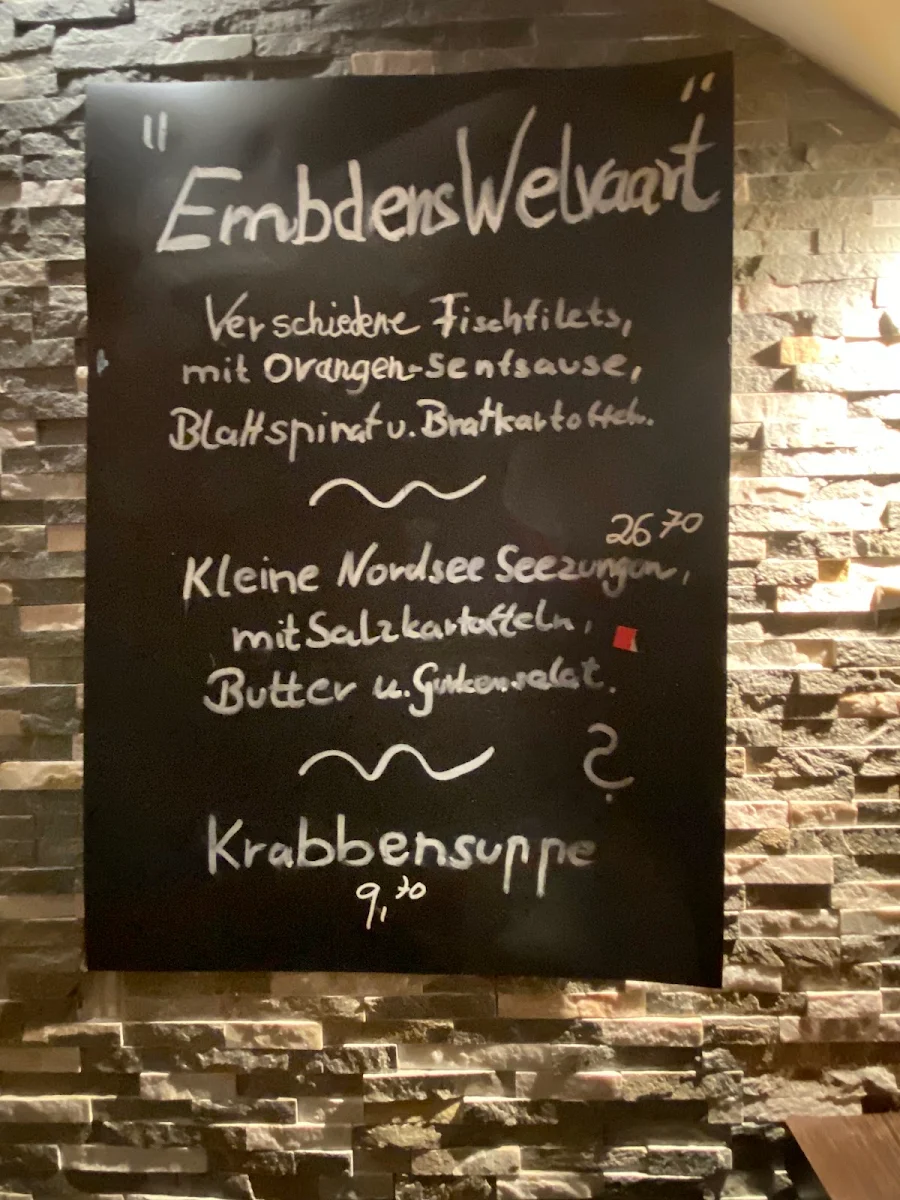 "EmbdensWelvaart"
Verschiedene Fischfilets,
mit Orangen-Senfsause,
Blattspinat u. Bratkartoffeln.
26 70
Kleine Nordsee Seezungen,
mit Salzkartoffeln,
Butter u. Gurkensalat.
Krabbensuppe
9,70